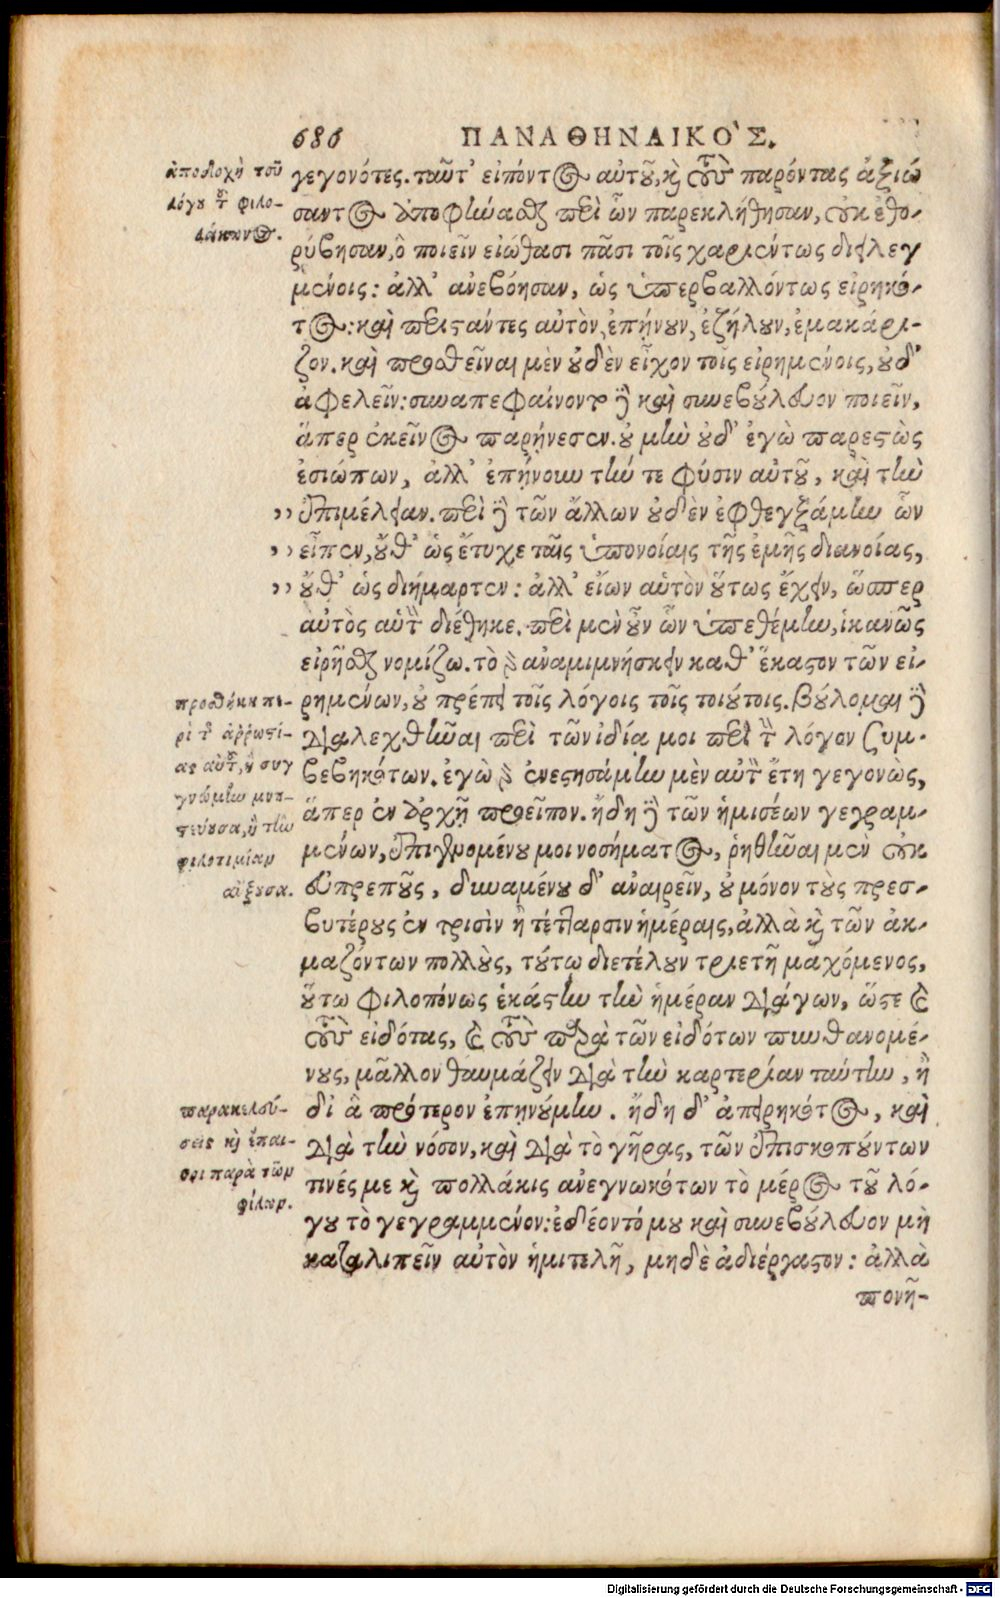 686 ΠΑΝΑΘΗΝΑΙΚΟΣ.
ἀποδοχὴ τοῦ
λόγου τοῦ φιλο-
λάκωνος.
γεγονότες. ταῦτ᾽ εἰπόντος αὐτοῦ, καὶ τοὺς παρόντας ἀξιώ
σαντος ἀποφήνασθαι περὶ ὧν παρεκλήθησαν, οὐκ ἐθο-
ρύβησαν, ὃ ποιεῖν εἰώθασι πᾶσι τοῖς χαριέντως διειλεγ
μένοις: ἀλλ᾽ ἀνεβόησαν, ὡς ὑπερβαλλόντως εἰρηκό-
τος: καὶ περιστάντες αὐτὸν, ἐπῄνουν, ἐζήλουν, ἐμακάρι-
ζον. καὶ προσθεῖναι μὲν οὐδὲν εἶχον τοῖς εἰρημένοις, οὐδ᾽
ἀφελεῖν: συναπεφαίνοντο δὲ καὶ συνεβούλευον ποιεῖν,
ἅπερ ἐκεῖνος παρῄνεσεν. οὐ μὴν οὐδ᾽ ἐγὼ παρεστὼς
ἐσιώπων, ἀλλ᾽ ἐπῄνουν τήν τε φύσιν αὐτοῦ, καὶ τὴν
,, ἐπιμέλειαν. περὶ δὲ τῶν ἄλλων οὐδὲν ἐφθεγξάμην ὧν
,, εἶπεν, οὔθ᾽ ὡς ἔτυχε ταῖς ὑπονοίαις τῆς ἐμῆς διανοίας,
,, οὔθ᾽ ὡς διήμαρτεν: ἀλλ᾽ εἴων αὐτὸν οὕτως ἔχειν, ὥσπερ
αὐτὸς αὑτὸν διέθηκε. περὶ μὲν οὖν ὧν ὑπεθέμην, ἱκανῶς
εἰρῆσθαι νομίζω. τὸ γὰρ ἀναμιμνήσκειν καθ᾽ ἕκαστον τῶν εἰ-
προσθήκη πε-
ρὶ τῆς ἀῤῥωστί-
ας αὐτοῦ, ἡ συγ
γνώμην μνη-
στεύουσα, ἢ τὴν
φιλοτιμίαν
αὔξουσα.
ρημένων, οὐ πρέπει τοῖς λόγοις τοῖς τοιούτοις. Βούλομαι δὲ
διαλεχθῆναι περὶ τῶν ἰδίᾳ μοι περὶ τὸν λόγον ξυμ-
βεβηκότων. ἐγὼ γὰρ ἐνεστησάμην μὲν αὐτὸν ἔτη γεγονὼς,
ἅπερ ἐν ἀρχῇ προεῖπον. ἤδη δὲ τῶν ἡμισέων γεγραμ-
μένων, ἐπιγενομένου μοι νοσήματος, ῥηθῆναι μὲν οὐκ
εὐπρεποῦς, δυναμένου δ᾽ ἀναιρεῖν, οὐ μόνον τοὺς πρεσ-
βυτέρους ἐν τρισὶν ἢ τέτταρσιν ἡμέραις, ἀλλὰ καὶ τῶν ἀκ-
μαζόντων πολλοὺς, τούτῳ διετέλουν τριετῆ μαχόμενος,
οὕτω φιλοπόνως ἑκάστην τὴν ἡμέραν διάγων, ὥστε καὶ
τοὺς εἰδότας, καὶ τοὺς παρὰ τῶν εἰδότων πυνθανομέ-
νους, μᾶλλον θαυμάζειν διὰ τὴν καρτερίαν ταύτην, ἢ
παρακελεύ-
σεις καὶ ἔπαι-
νοι παρὰ τῶν
φίλων.
δι᾽ ἃ πρότερον ἐπῃνούμην. ἤδη δ᾽ ἀπειρηκότος, καὶ
διὰ τὴν νόσον, καὶ διὰ τὸ γῆρας, τῶν ἐπισκοπούντων
τινές με καὶ πολλάκις ἀνεγνωκότων τὸ μέρος τοῦ λό-
γου τὸ γεγραμμένον: ἐδέοντό μου καὶ συνεβούλευον μὴ
καταλιπεῖν αὐτὸν ἡμιτελῆ, μηδὲ ἀδιέργαστον: ἀλλὰ
πονῆ-
Digitalisierung gefördert durch die Deutsche Forschungsgemeinschaft - DFG